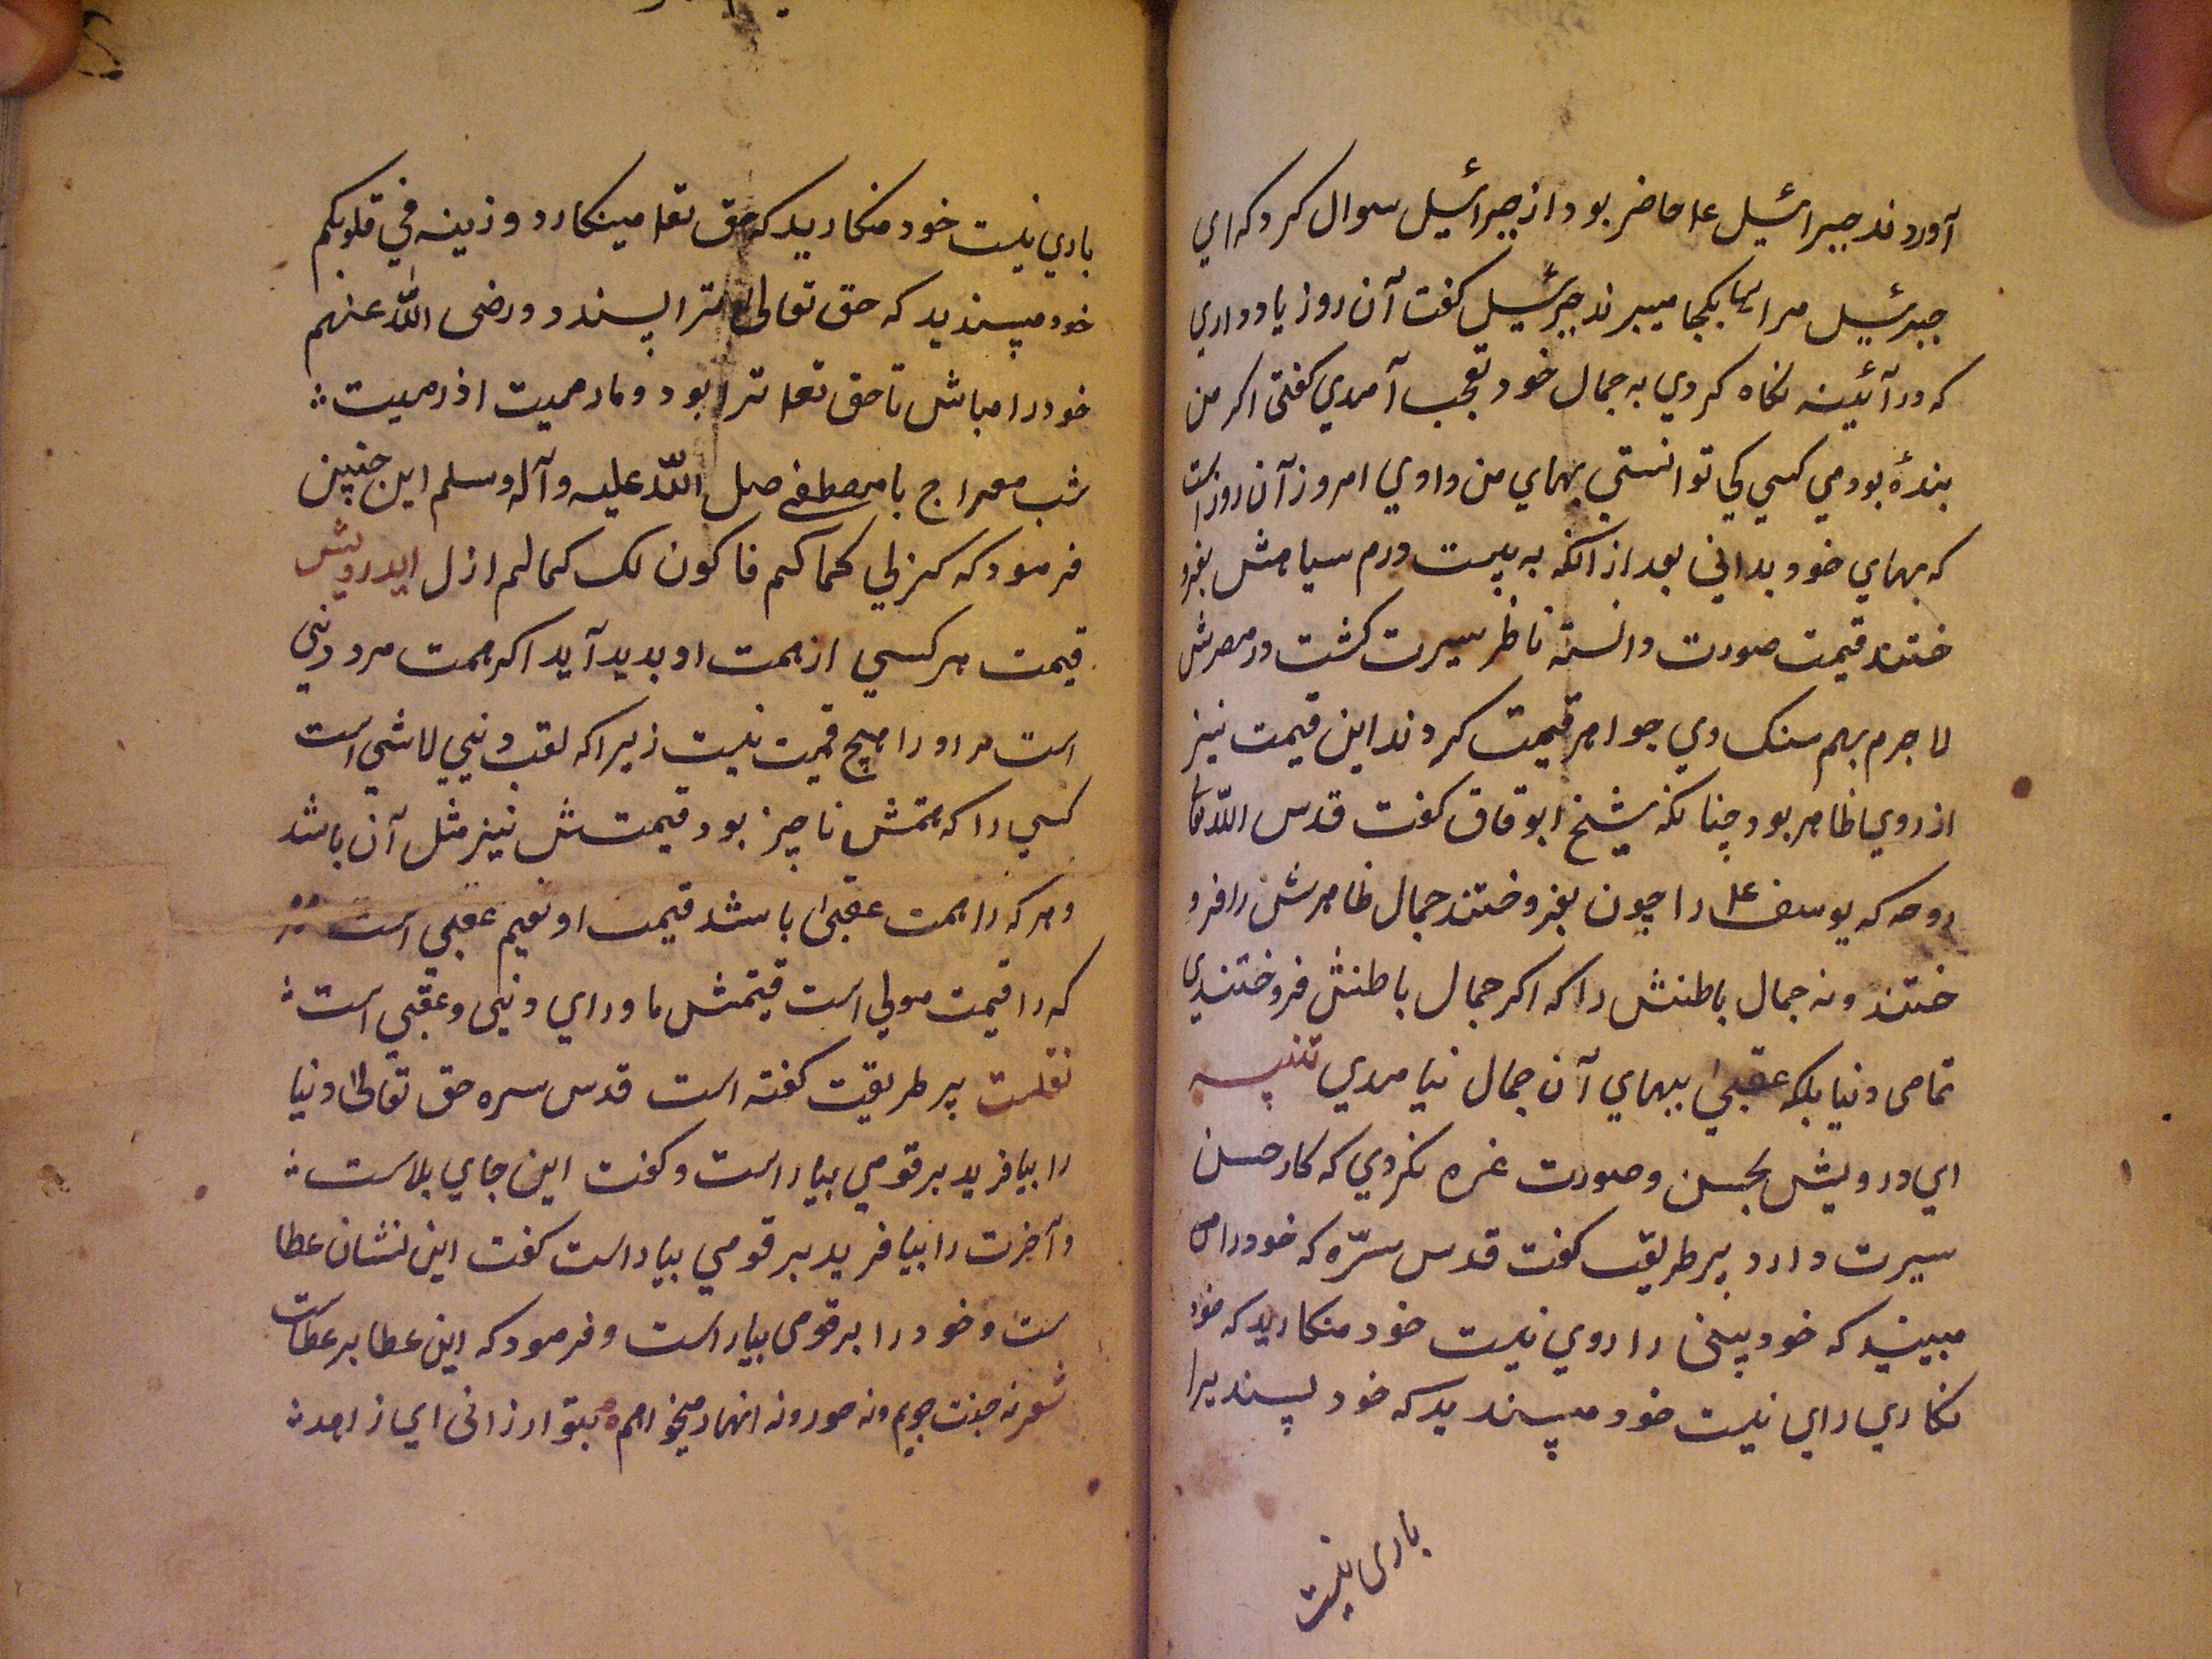 آوردند جبرائیل ع‌ حاضر بود از جبرائیل سوال کرد که ای
جبرئیل مرا بکجا میبرند جبرئیل کفت آن روز یاد داری
که در آئینه نکاه کردی به جمال خود تعجب آمدی کفتی اکر من
بندهٔ بودمی کسی کی توانستی بهای من دادی امروز آن روز است
که بهای خود بدانی بعد از انکه به بیست درم سیاهش بفرو
ختند قیمت صورت دانسته ناظر سیرت کشت در مصرش
لا جرم بهم سنک وی جواهر قیمت کردند این قیمت نیز
از روی ظاهر بود چنانکه شیخ ابو قاق کفت قدس الله تعا
روحه که یوسف ع‌ را چون بفروختند جمال ظاهرش را فرو
ختند و نه جمال باطنش را که اکر جمال باطنش فروختندی
تمامی دنیا بلکه عقبیٰ ببهای آن جمال نیامدی تنبیه
ای درویش بحسن و صورت غره نکردی که کار حسن
سیرت دارد پیر طریقت کفت قدس سرّه که خود را
مبینید که خود بینی را روی نیست خود منکارید که خود
نکاری را رای نیست خود مپسندید که خود پسندیرا
باری نیست
باری نیست خود منکارید که حق تعا مینکارد و زینه فی قلوبکم
خود مپسندید که حق تعالیٰ ترا پسندد و رضی اللّٰه عنهم
خود را مباش تا حق تعا ترا بود و ما رمیت اذ رمیت
شب معراج با مصطفے صلی اللّٰه علیه و آله وسلم این چنین
فرمود که کن لی کما کم فاکون لک کما لم ازل ایدرویش
قیمت هر کسی از همت او بدید آید اکر همت مرد دنیی
است مر او را هیچ قیمت نیست زیرا که لقب دنیی لاشی است
کسی را که همتش ناچیز بود قیمتش نیز مثل آن باشد
و هر که را همت عقبیٰ باشد قیمت او نعیم عقبی است
که را قیمت مولی است قیمتش ماورای دنیی و عقبی است
نقلست پیر طریقت کفته است قدس سره حق تعالیٰ دنیا
را بیافرید بر قومی بیاراست و کفت این جای بلاست
و آخرت را بیافرید بر قومی بیاراست کفت این نشان عطا
ست و خود را بر قومی بیاراست و فرمود که این عطا بر عطاست
شعر نه جنت جویم و نه حور و نه انهار میخواهم بتو ارزانی ای زاهد